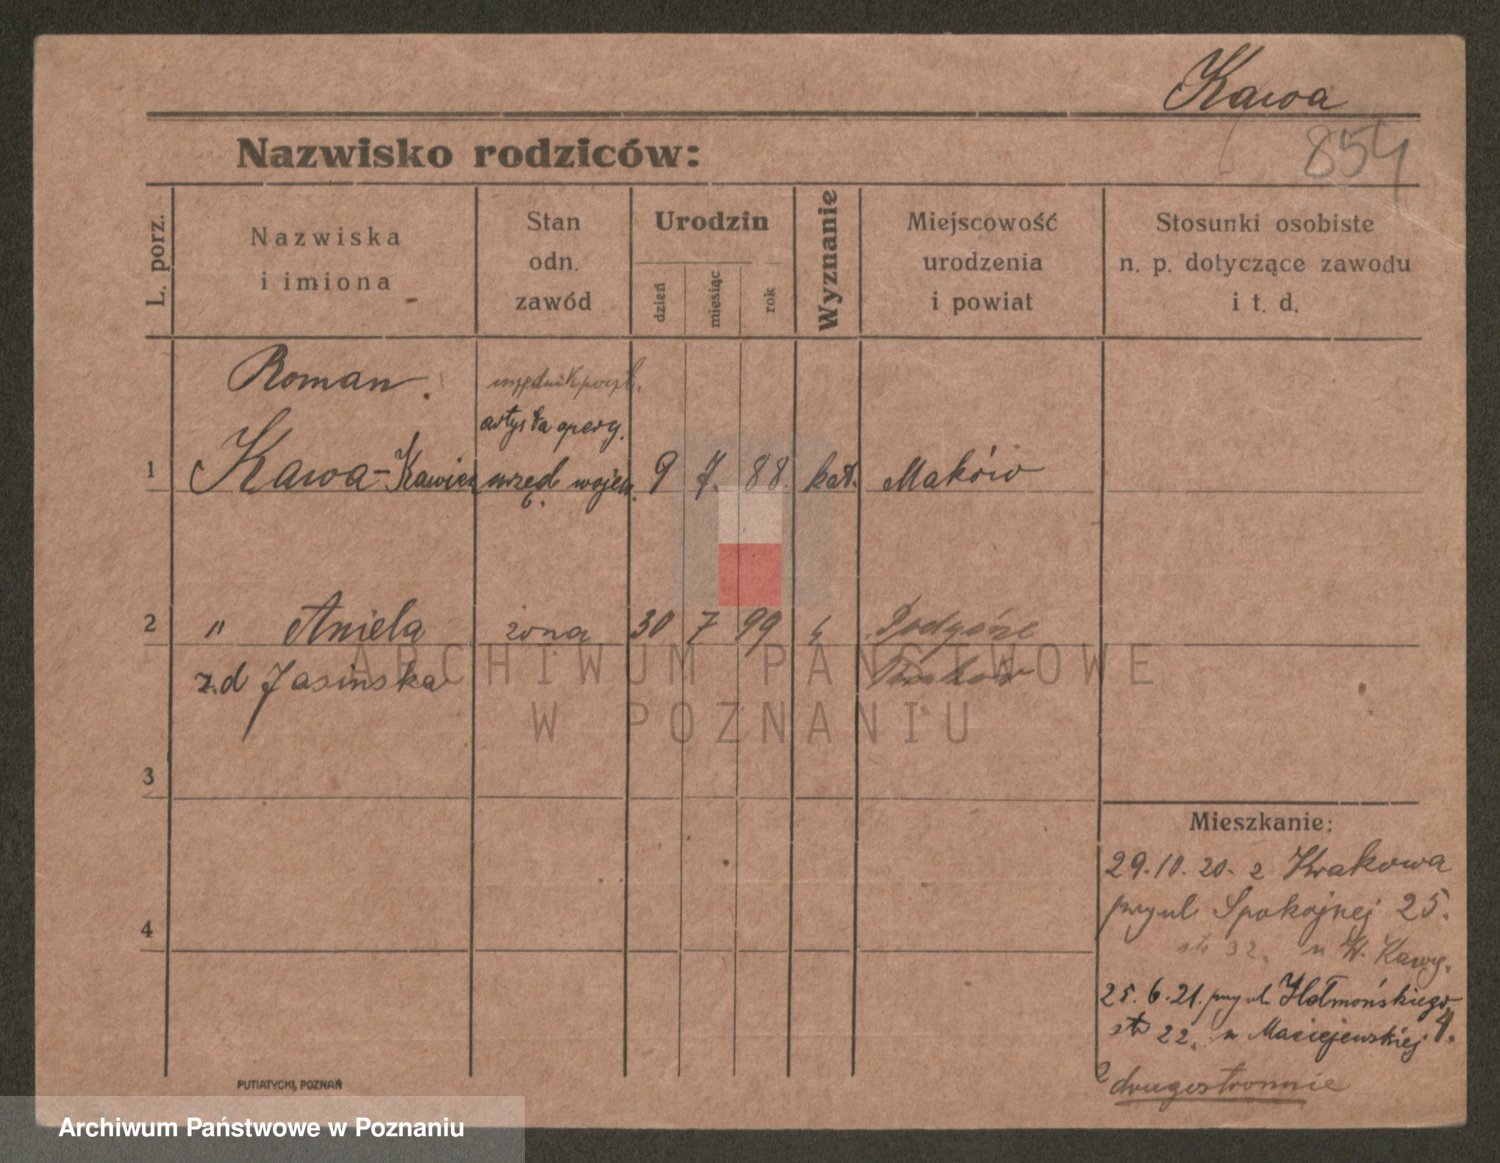 Kawa
854
Nazwisko rodziców:
L. porz.
Nazwiska
i imiona
Stan
odn.
zawód
Urodzin
dzień
miesiąc
rok
Wyznanie
Miejscowość
urodzenia
i powiat
Stosunki osobiste
n. p. dotyczące zawodu
i t. d.
Roman
artysta opery.
1 Kawa-Kawicz urzęd. wojew. 9 7. 88. kat. Maków
2 " Aniela żona 30 7 99 Podgórze
z.d Jasińska Kraków
ARCHIWUM PAŃSTWOWE
W POZNANIU
3
4
Mieszkanie:
29.10.20. z Krakowa
przy ul. Spokojnej 25.
32. u W. Kawy.
25.6.21. przy ul. Hełmońskiego 4.
22. u Maciejewskiej
drugostronnie
PUTIATYCKI, POZNAŃ
Archiwum Państwowe w Poznaniu